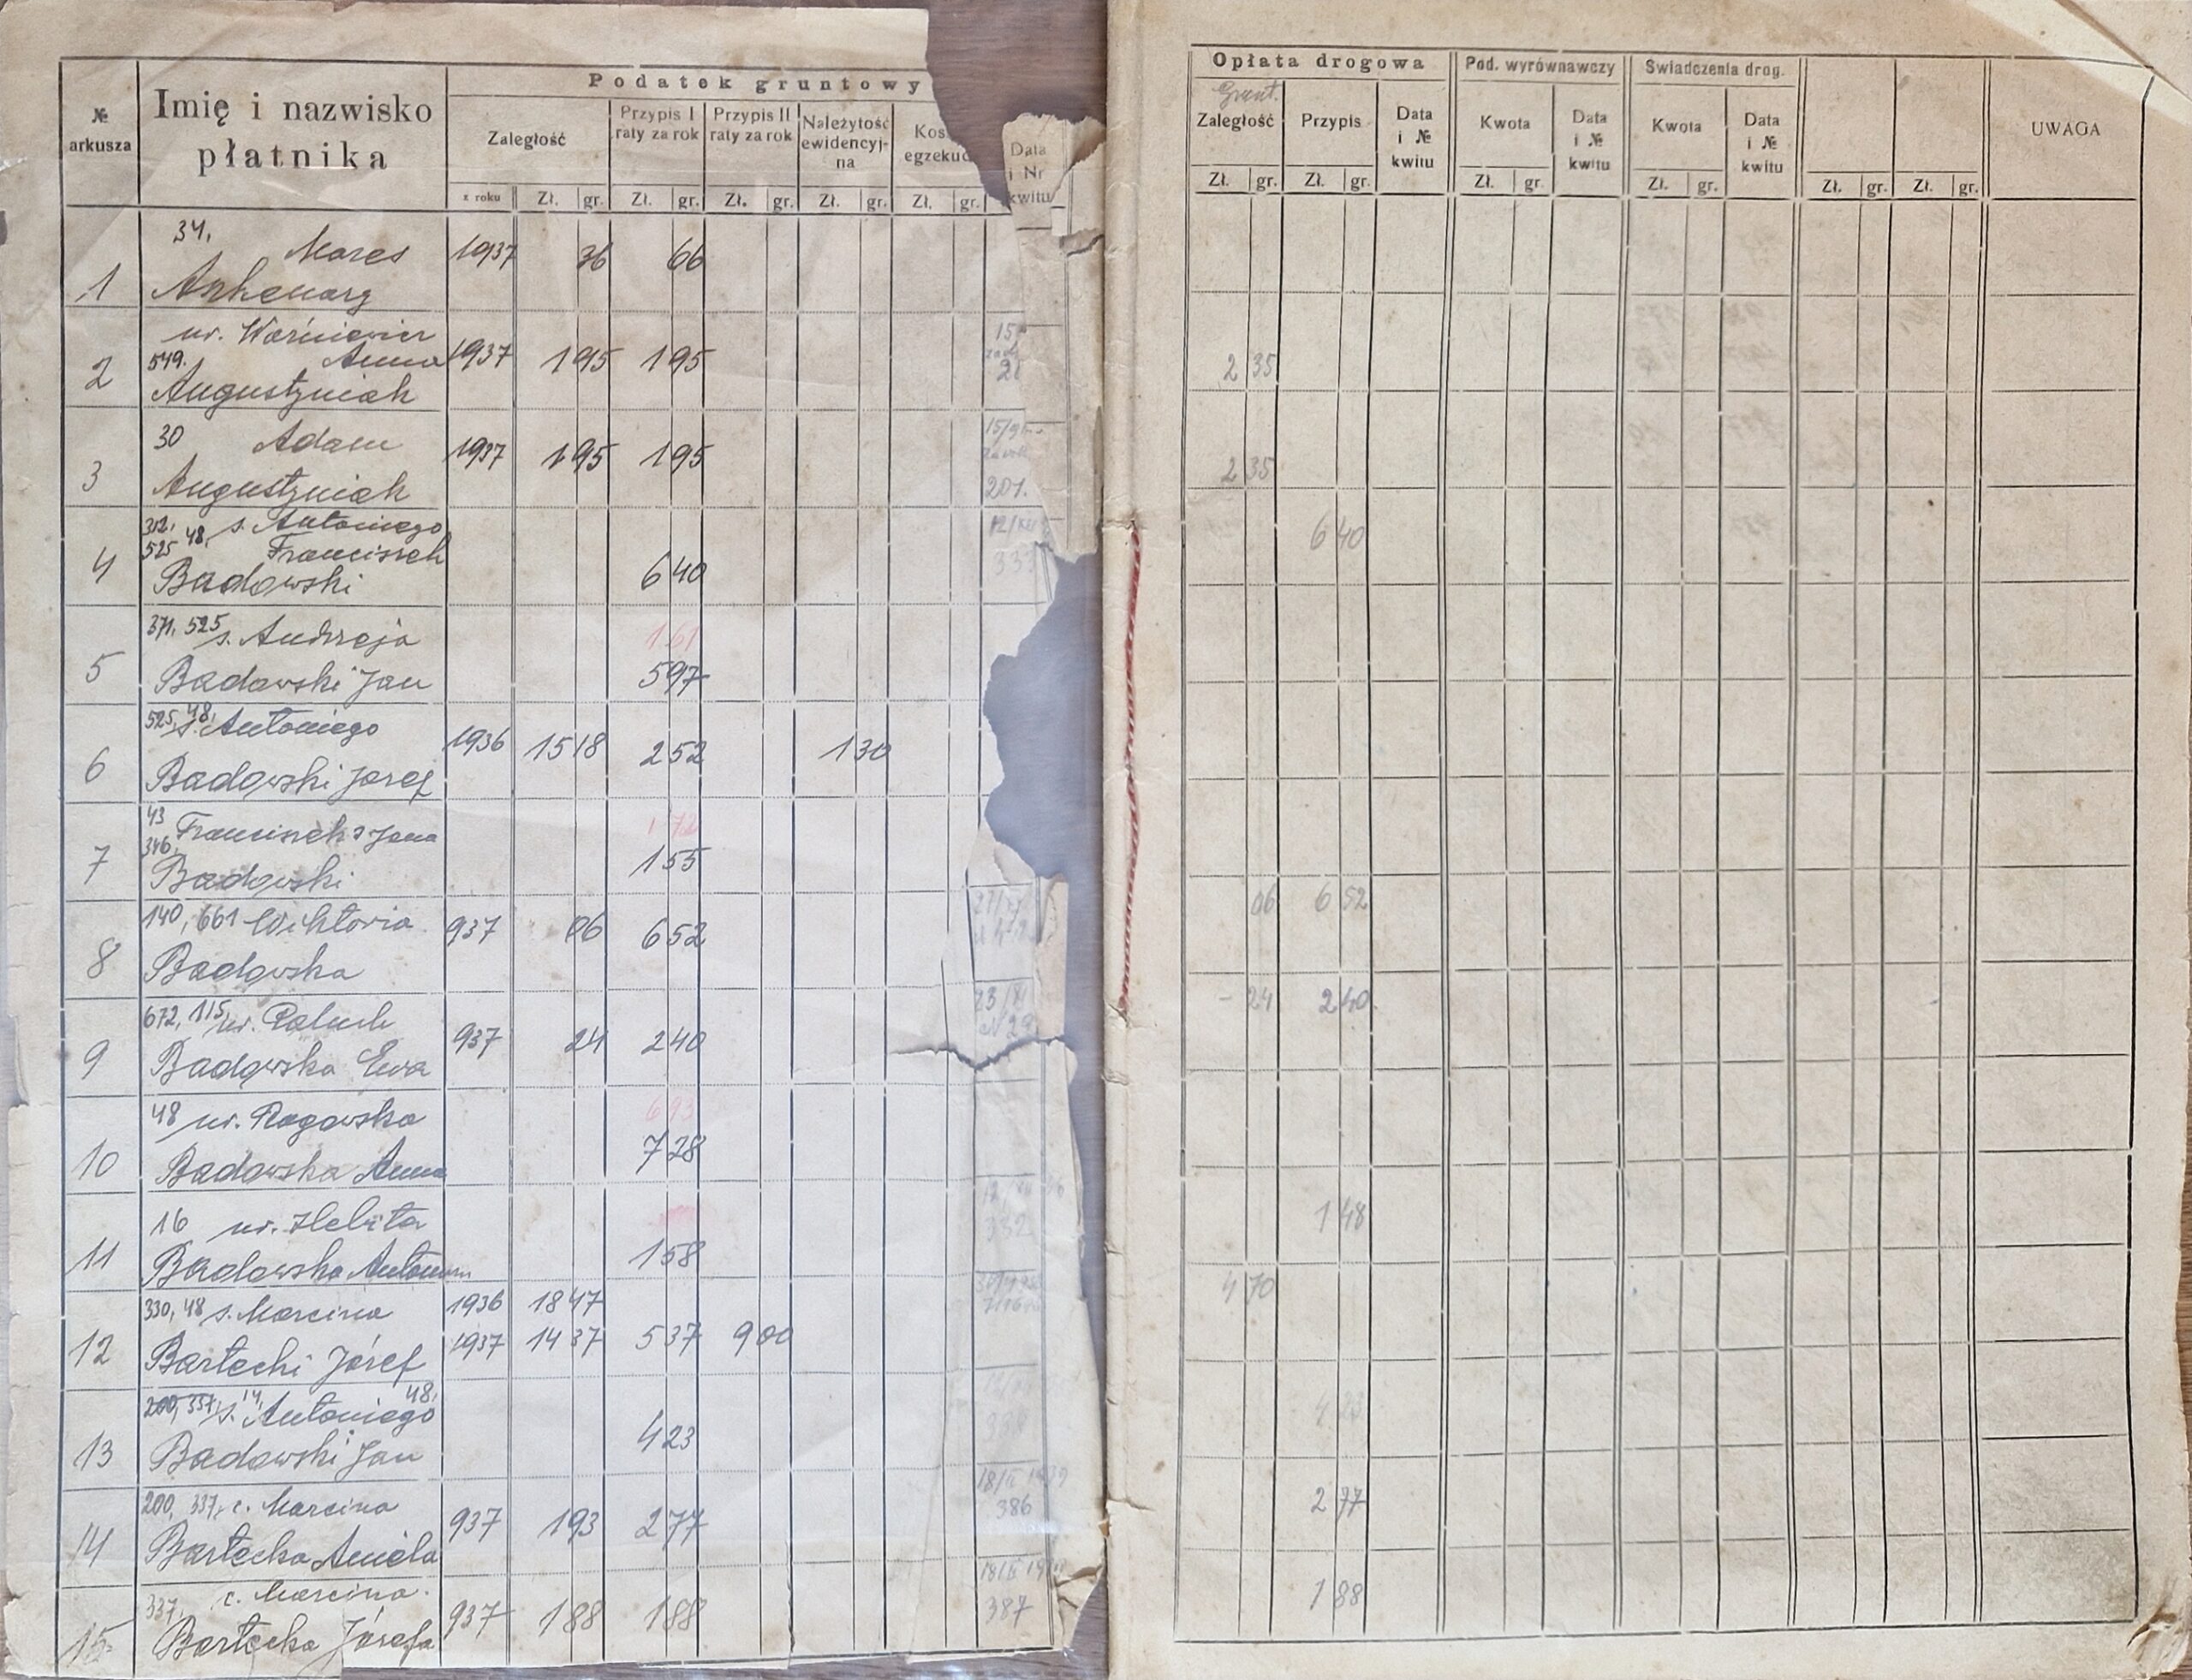 Podatek gruntowy
№ arkusza
Imię i nazwisko
płatnika
Zaległość
Przypis I raty za rok
Przypis II raty za rok
Należytość ewidencyj-na
Kos
egzekuc
Data i Nr kwitu
z roku Zł. gr. Zł. gr. Zł. gr. Zł. gr. Zł. gr.
34, Mores 1937 36 66
1
ur. Woźniewicz
2 549. Anna 1937 1 95 1 95
Augustyniak
30 Adam 1937 1 95 1 95 15/
3 Augustyniak 201.
312, s. Antoniego 12/
525 48, Franciszek 333
4 Badowski 6 40
371, 525 s. Andrzeja 1 61
5 Badowski Jan 5 97
525, 48, s. Antoniego 1936 15 18 2 52 1 30
6 Badowski Józef
43 Franciszek s Jana 1 72
346, 1 55
7 Badowski
140, 661 Wiktoria 937 06 6 52
8 Badowska
672, 115, ur. Paluch 23/XI
9 Badowska Ewa 937 24 2 40 № 29
48 ur. Rogowska 6 93
10 Badowska Anna 7 28
16 ur.
11 Badowska 1 58 332
330, 48 s. Marcina 1936 18 47
12 Bartecki Józef 1937 14 37 5 37 9 00
200, 337, s. 14, Antoniego 48,
13 Badowski Jan 4 23
200, 337, c. Marcina 18/II
14 Bartecka Aniela 937 1 93 2 77 386
337, c. Marcina
15 Bartecka Józefa 937 1 88 1 88 387
Opłata drogowa Pod. wyrównawczy Świadczenia drog.
Grunt.
Zaległość Przypis Data i № kwitu Kwota Data i № kwitu Kwota Data i № kwitu UWAGA
Zł. gr. Zł. gr. Zł. gr. Zł. gr. Zł. gr. Zł. gr.
2 35
2 35
6 40
06 6 52
- 24 2 40
1 48
4 70
4 23
2 77
1 88